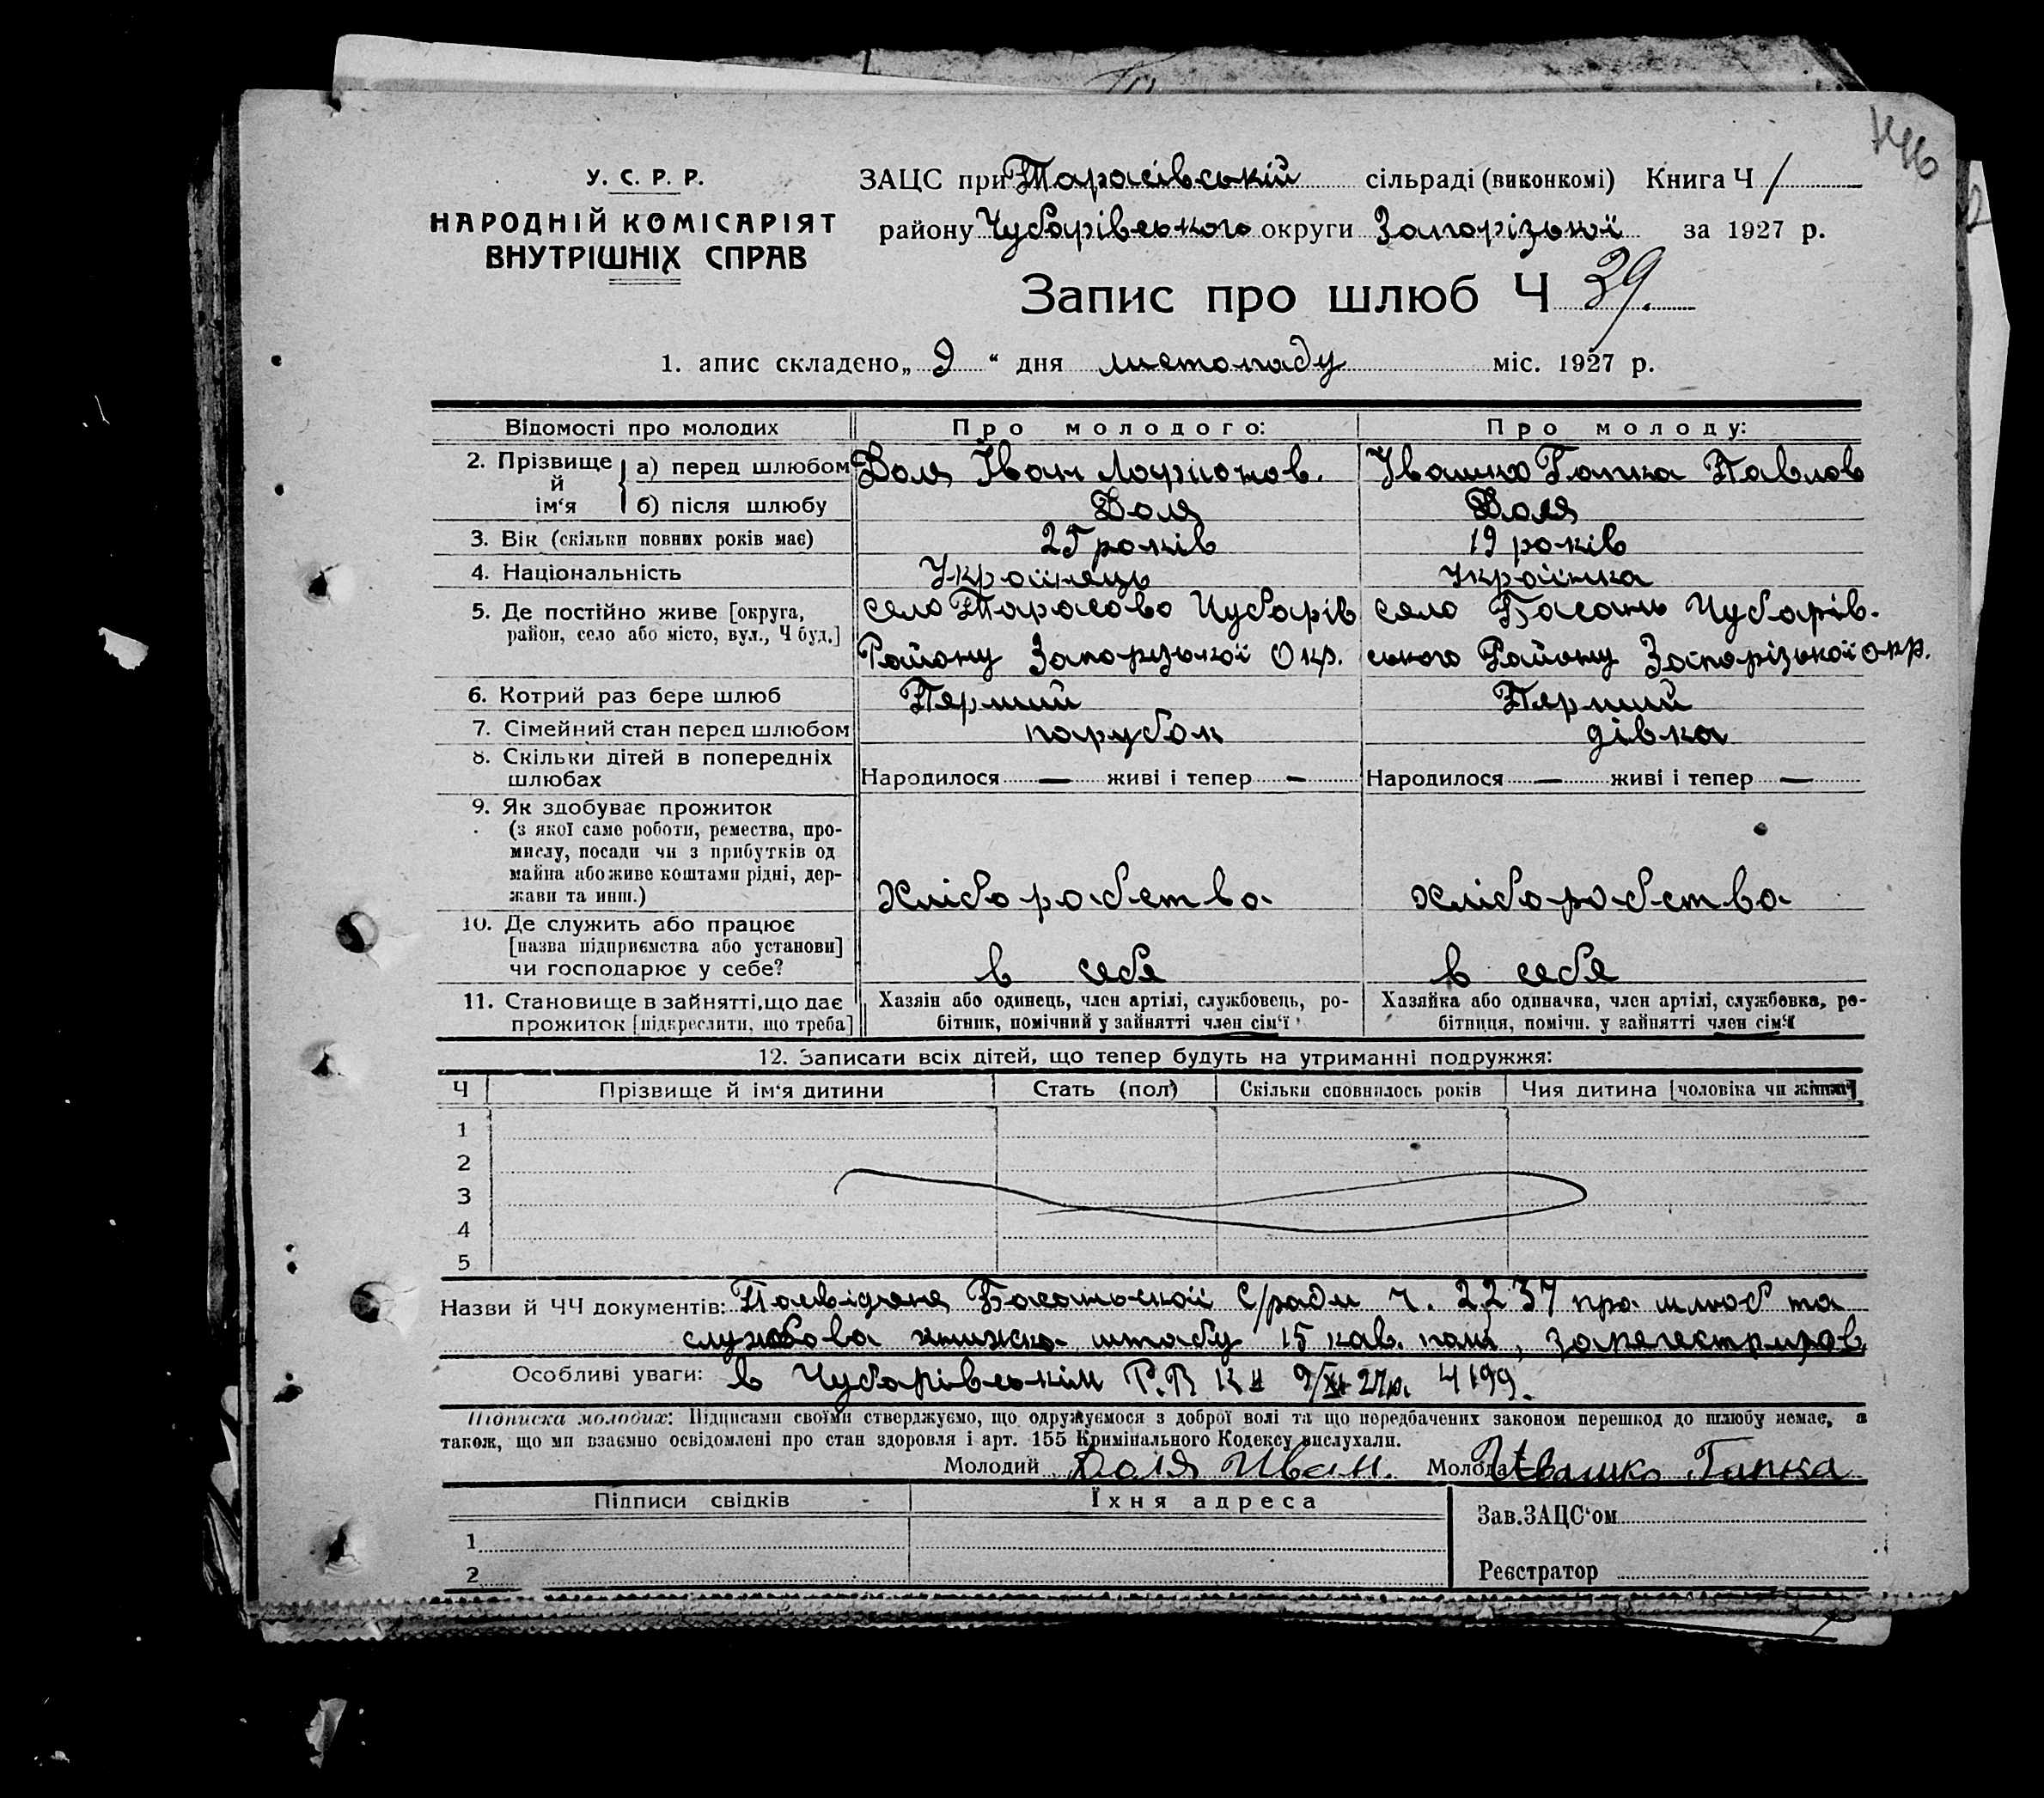 146
У. С. Р. Р.
НАРОДНІЙ КОМІСАРІЯТ
ВНУТРІШНІХ СПРАВ
ЗАЦС при Тарасівській сільраді (виконкомі) Книга Ч 1
району Чубарівського округи Запорізької за 1927 р.
Запис про шлюб Ч 39.
1. апис складено „ 9 “ дня листопаду міс. 1927 р.
Відомості про молодих Про молодого: Про молоду:
2. Прізвище й ім‘я а) перед шлюбом Доля Іван Ларионов. Івашко Гапка Павлов
б) після шлюбу Доля Доля
3. Вік (скільки повних років має) 25 років 19 років
4. Національність Українець Українка
5. Де постійно живе [округа, село Тарасово Чубарів село Басань Чубарів-
район, село або місто, вул., Ч буд.] Району Запорізької Окр. ського Району Запорізької окр.
6. Котрий раз бере шлюб Перший Перший
7. Сімейний стан перед шлюбом парубок дівка
8. Скільки дітей в попередніх
шлюбах Народилося — живі і тепер — Народилося — живі і тепер —
9. Як здобуває прожиток
(з якої саме роботи, ремества, про-
мислу, посади чи з прибутків од
майна або живе коштами рідні, дер-
жави та инш.) хліборобство хліборобство
10. Де служить або працює
[назва підприємства або установи]
чи господарює у себе? в себе в себе
11. Становище в зайнятті, що дає Хазяін або одинець, член артілі, службовець, ро- Хазяйка або одиначка, член артілі, службовка, ро-
прожиток [підкреслити, що треба] бітник, помічний у зайнятті член сім‘ї бітниця, помічн. у зайнятті член сім‘ї
12. Записати всіх дітей, що тепер будуть на утриманні подружжя:
Ч Прізвище й ім‘я дитини Стать (пол) Скільки сповнилось років Чия дитина [чоловіка чи жінки]
1
2
3
4
5
Назви й ЧЧ документів: Басанської С/ради ч. 2237 про шлюб та
службова книжка штабу 15 кав.
Особливі уваги: в Чубарівськім 9/XI 27р. 4199.
Підписка молодих: Підписами своїми стверджуємо, що одружуємося з доброї волі та що передбачених законом перешкод до шлюбу немає, а
також, що ми взаємно освідомлені про стан здоровля і арт. 155 Кримінального Кодексу вислухали.
Молодий Доля Иван. Молода Ивашко Гапка
Підписи свідків Їхня адреса
Зав. ЗАЦС‘ом
1
2
Реєстратор